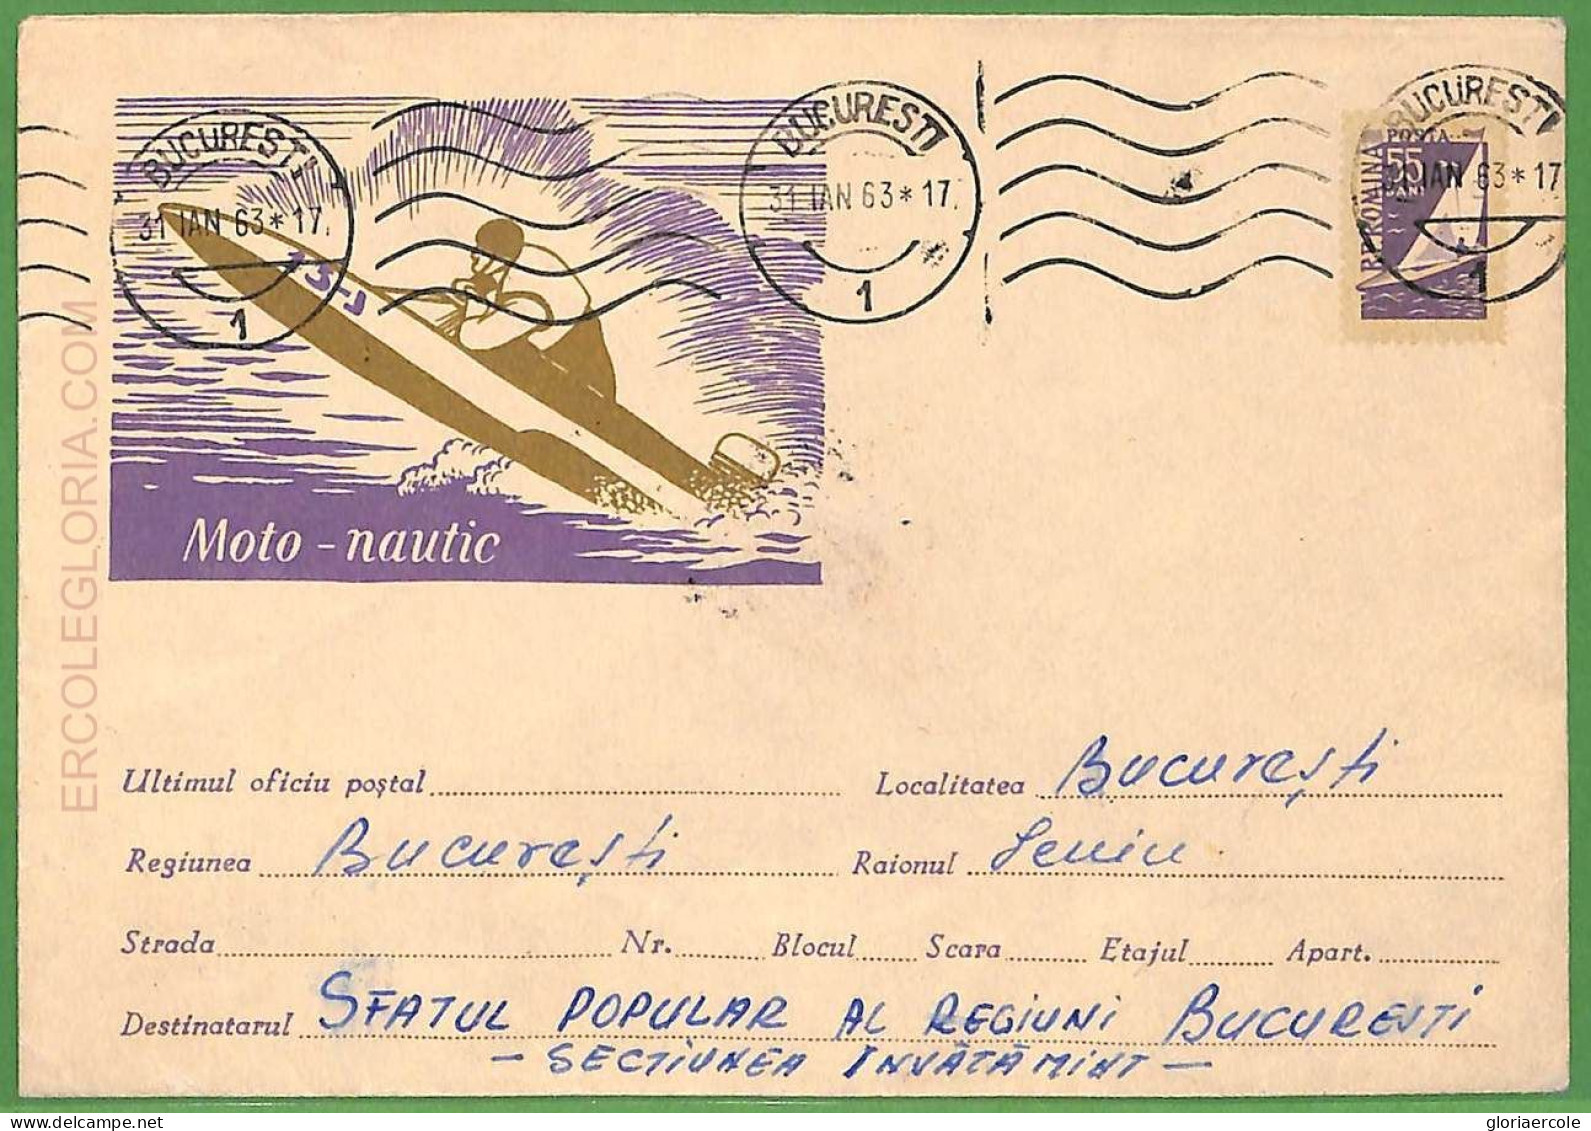 BUCURESTI
31 IAN 63*17.
1
BUCURESTI
31 IAN 63*17.
1
BUCURESTI
IAN 63*17
1
POSTA
55
BANI
R.P.ROMINA
13-J
Moto - nautic
ERCOLEGLORIA.COM
Ultimul oficiu poştal Localitatea Bucureşti
Regiunea Bucureşti Raionul Lenin
Strada Nr. Blocul Scara Etajul Apart.
Destinatarul SFATUL POPULAR AL REGIUNI BUCURESTI
- SECTIUNEA INVĂTĂMINT -
gloriaercole